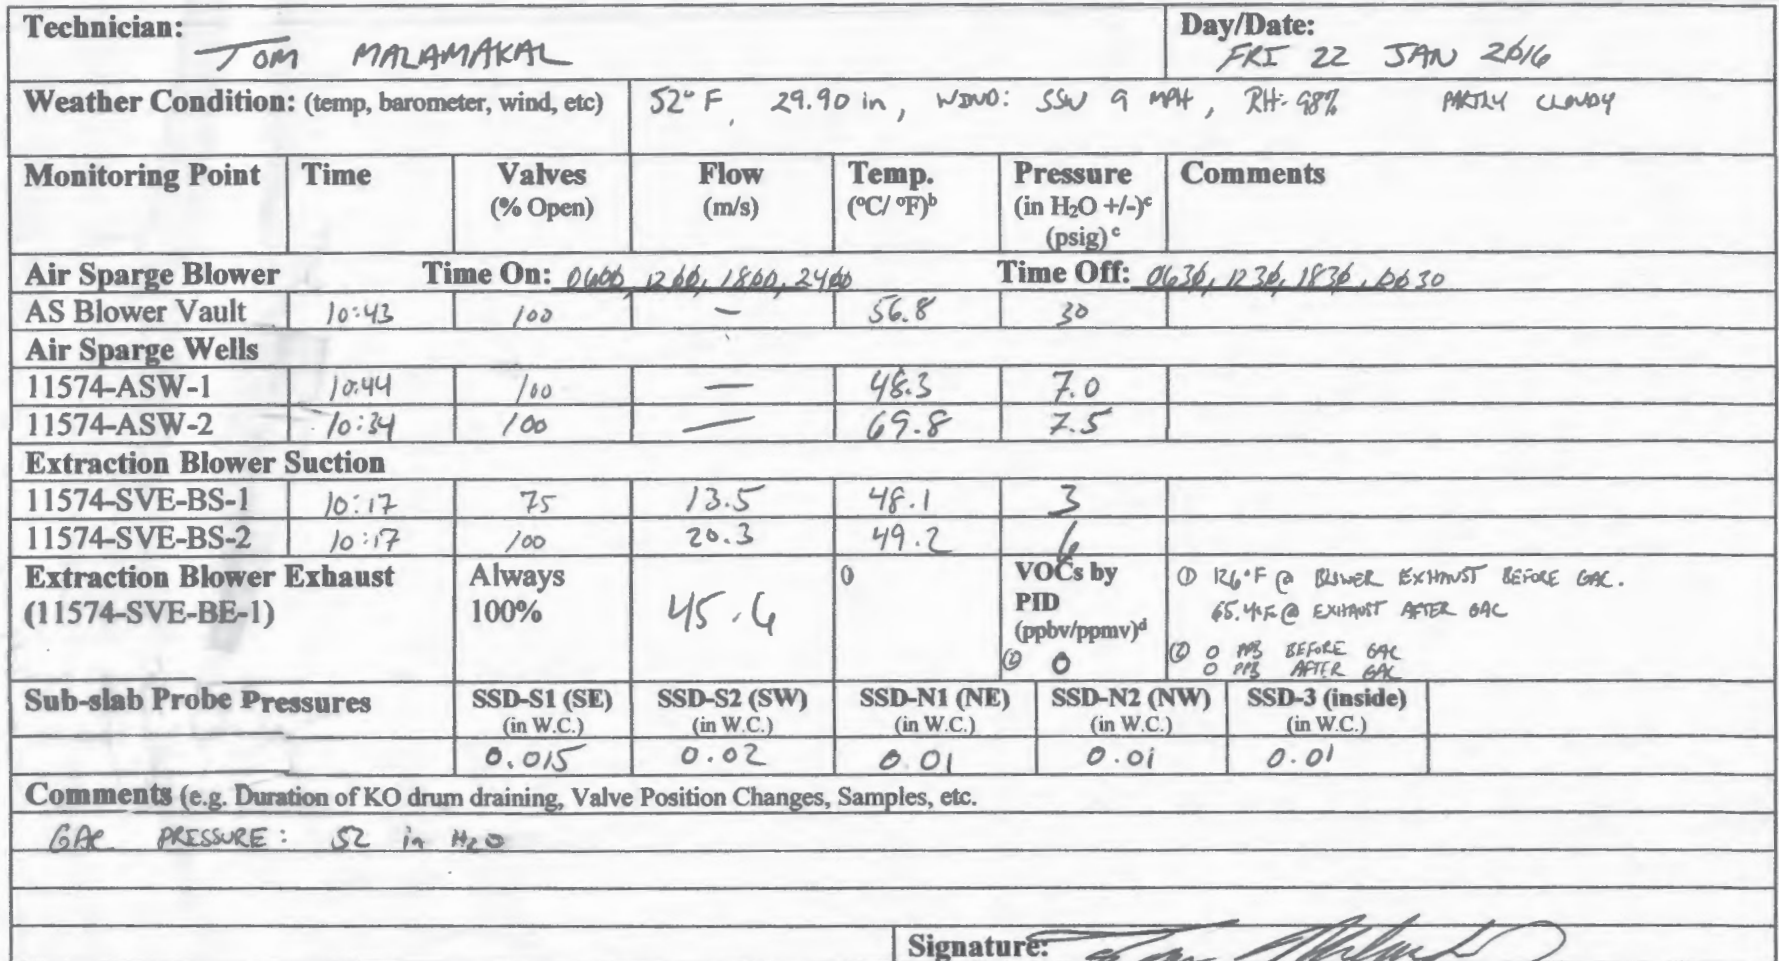 Technician: Day/Date:
TOM MALAMAKAL FRI 22 JAN 2016
Weather Condition: (temp, barometer, wind, etc) 52° F, 29.90 in, WIND: SSW 9 MPH, RH: 98% PARTLY CLOUDY
Monitoring Point Time Valves Flow Temp. Pressure Comments
(% Open) (m/s) (°C/ °F)b (in H2O +/-)c
(psig) c
Air Sparge Blower Time On: 0600, 1200, 1800, 2400 Time Off: 0630, 1230, 1830, 0030
AS Blower Vault 10:43 100 — 56.8 30
Air Sparge Wells
11574-ASW-1 10:44 100 — 48.3 7.0
11574-ASW-2 10:34 100 — 69.8 7.5
Extraction Blower Suction
11574-SVE-BS-1 10:17 75 13.5 48.1 3
11574-SVE-BS-2 10:17 100 20.3 49.2 6
Extraction Blower Exhaust Always ① VOCs by ① 126°F @ BLOWER EXHAUST BEFORE GAC.
(11574-SVE-BE-1) 100% 45.6 PID 65.4°F @ EXHAUST AFTER GAC
(ppbv/ppmv)d
② 0 ② 0 PPB BEFORE GAC
0 PPB AFTER GAC
Sub-slab Probe Pressures SSD-S1 (SE) SSD-S2 (SW) SSD-N1 (NE) SSD-N2 (NW) SSD-3 (inside)
(in W.C.) (in W.C.) (in W.C.) (in W.C.) (in W.C.)
0.015 0.02 0.01 0.01 0.01
Comments (e.g. Duration of KO drum draining, Valve Position Changes, Samples, etc.
GAC PRESSURE: 52 in H2O
Signature: